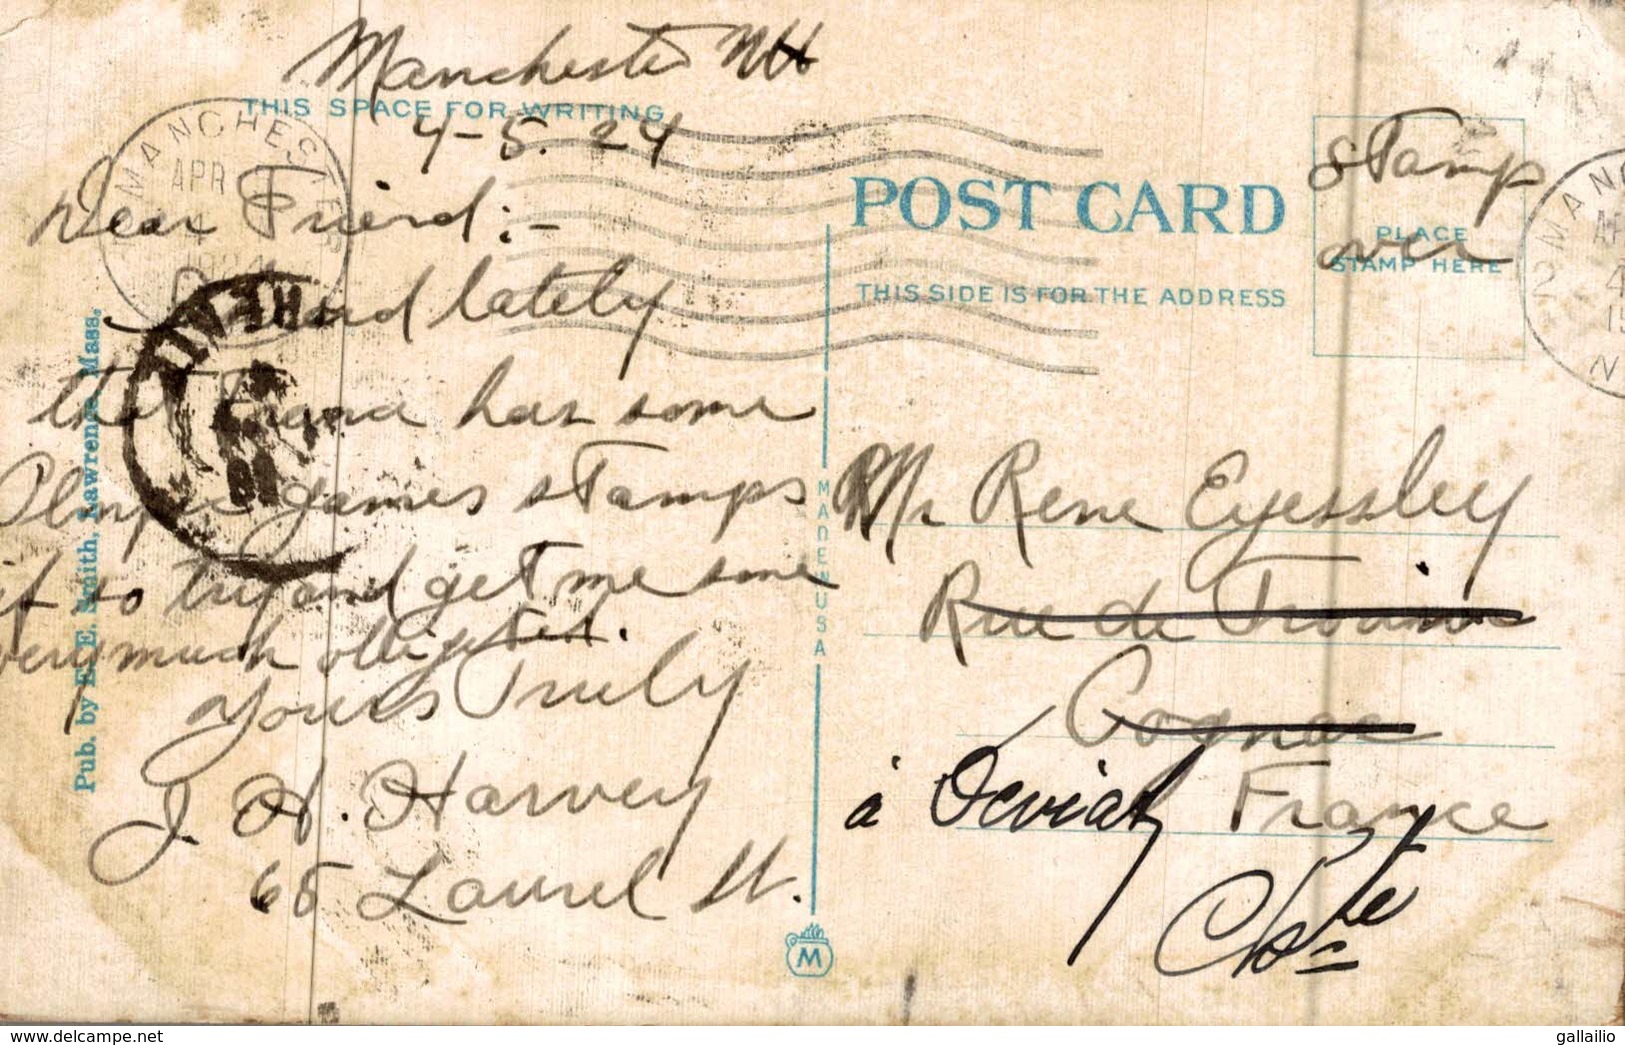 Manchester NH
THIS SPACE FOR WRITING
4-5.24
Dear Friend:-
I heard lately
that France has some
Olmpic games stamps
if so try and get me some
very much obliged.
Yours Truly
J. H. Harvey
65 Laurel St.
Pub. by E. E. Smith, Lawrence, Mass.
MANCHESTER
APR
4
1924
POST CARD
THIS SIDE IS FOR THE ADDRESS
PLACE
STAMP HERE
Stamp
over
MADE IN USA
Mr Rene Eyessley
Rue de
Cognac
France
à
Chte
M
gallailio